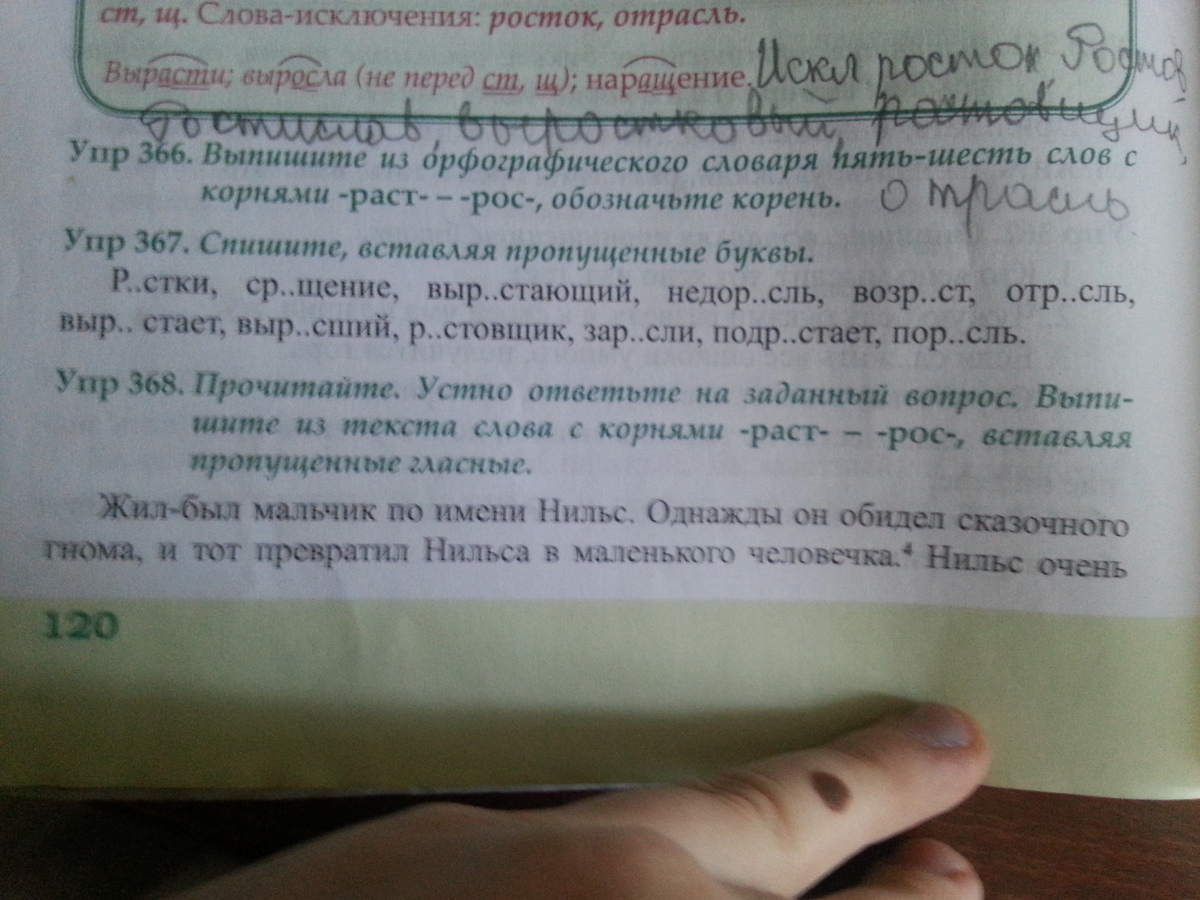 ст, щ. Слова-исключения: росток, отрасль.
Вырасти; выросла (не перед ст, щ); наращение. Искл росток, Ростов
Ростислав, выростковый, ростовщик,
Упр 366. Выпишите из орфографического словаря пять-шесть слов с
корнями -раст- – -рос-, обозначьте корень. отрасль
Упр 367. Спишите, вставляя пропущенные буквы.
Р..стки, ср..щение, выр..стающий, недор..сль, возр..ст, отр..сль,
выр.. стает, выр..сший, р..стовщик, зар..сли, подр..стает, пор..сль.
Упр 368. Прочитайте. Устно ответьте на заданный вопрос. Выпи-
шите из текста слова с корнями -раст- – -рос-, вставляя
пропущенные гласные.
Жил-был мальчик по имени Нильс. Однажды он обидел сказочного
гнома, и тот превратил Нильса в маленького человечка.⁴ Нильс очень
120